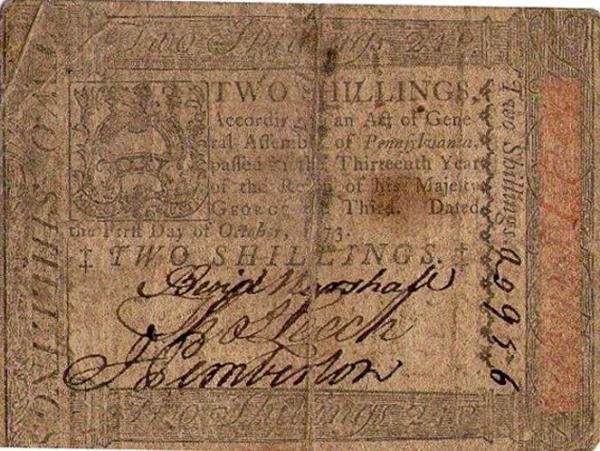 Two Shillings 24 D.
TWO SHILLINGS.
According to an Act of Gene-
ral Assembly of Pennsylvania,
passed in the Thirteenth Year
of the Reign of his Majesty
GEORGE the Third. Dated
the First Day of October, 1773.
‡ TWO SHILLINGS. ‡
Marshall
Pemberton
Two Shillings 24 D.
TWO SHILLINGS
Two Shillings